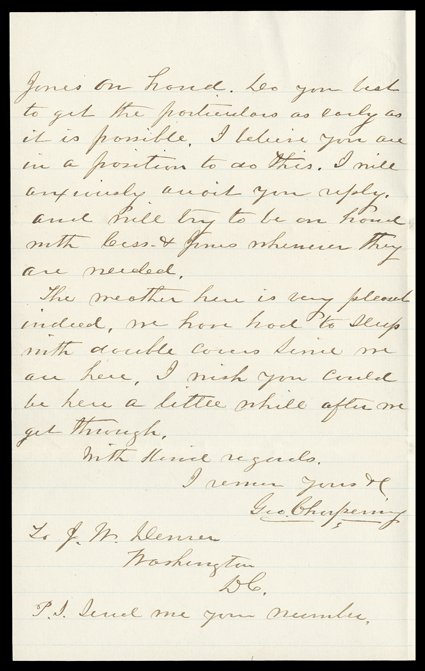 Jones on hand. Do you best
to get the particulars as early as
it is possible, I believe you are
in a position to do this. I will
anxiously await you reply.
and will try to be on hand
with Ciss. & Jones whenever they
are needed.
The weather here is very pleasant
indeed, we have had to sleep
with double covers since we
are here, I wish you could
be here a little while after we
get through.
With Kind regards.
I remain Yours &c
Geo. Chorpening
To J. W. Denver
Washington
D.C.
P.S. Send me your number.